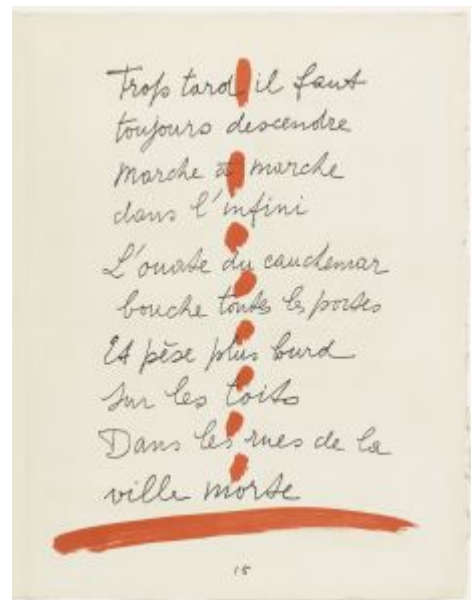 Trop tard il faut
toujours descendre
Marche à marche
dans l'infini
L'ouate du cauchemar
bouche toutes les portes
Et pèse plus lourd
Sur les toits
Dans les rues de la
ville morte
15